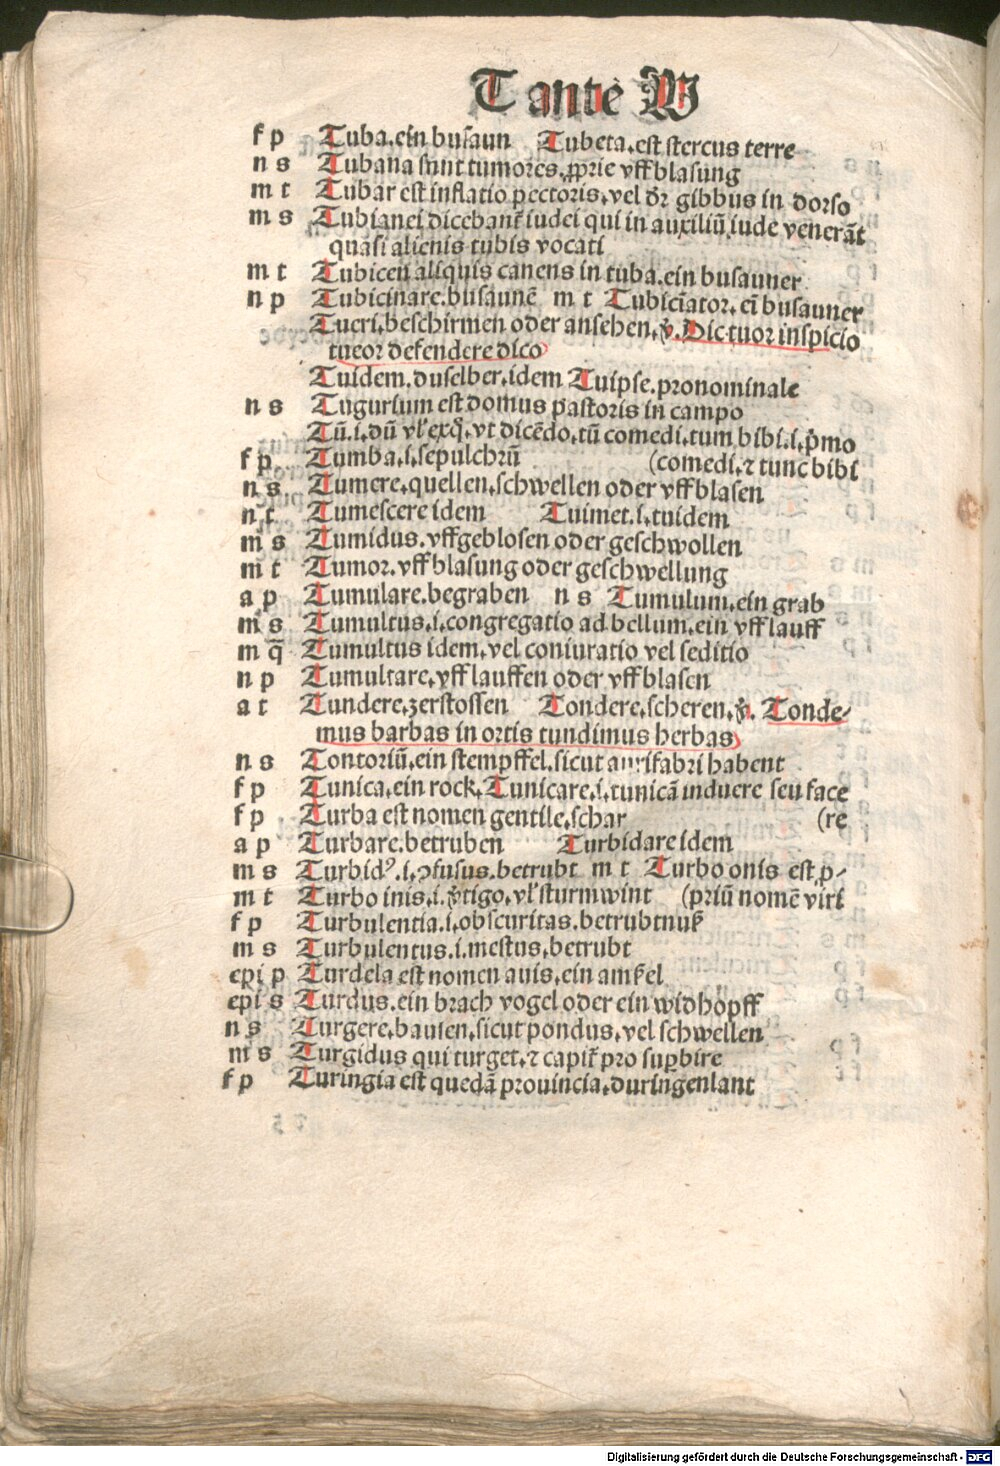 T ante W
f p Tuba.ein busaun Tubeta.est stercus terre
n s Tubana sunt tumores.ꝓprie vffblasung
m t Tubar est inflatio pectoris.vel dr̄ gibbus in dorso
m s Tubianei dicebant̄ iudei qui in auxiliū iude venerāt
quasi alienis tubis vocati
m t Tubicen aliquis canens in tuba.ein busauner
n p Tubicinare.busaunē m t Tubiciātor.ei busauner
Tueri.beschirmen oder ansehen.v̓. Dic tuor inspicio
tueor defendere dico
Tuidem.duselber.idem Tuipse.pronominale
n s Tugurium est domus pastoris in campo
Tū.i.dū vl̓ exq̄.vt dicēdo.tū comedi.tum bibi.i.p̓mo
f p Tumba.i.sepulchrū (comedi.⁊ tunc bibi
n s Tumere.quellen.schwellen oder vffblasen
n t Tumescere idem Tuimet.i.tuidem
m s Tumidus.vffgeblosen oder geschwollen
m t Tumor.vffblasung oder geschwellung
a p Tumulare.begraben n s Tumulum.ein grab
m s Tumultus.i.congregatio ad bellum.ein vfflauff
m q̄ Tumultus idem.vel coniuratio vel seditio
n p Tumultare.vfflauffen oder vffblasen
a t Tundere.zerstossen Tondere.scheren.v̓. Tonde⸗
mus barbas in ortis tundimus herbas
n s Tontoriū.ein stempffel.sicut aurifabri habent
f p Tunica.ein rock.Tunicare.i.tunicā induere seu face
f p Turba est nomen gentile.schar (re
a p Turbare.betruben Turbidare idem
m s Turbidꝰ.i.ↄfusus.betrubt m t Turbo onis est ꝓ⸗
m t Turbo inis.i.v̓tigo.vl̓ sturmwint (priū nomē viri
f p Turbulentia.i.obscuritas.betrubtnuß
m s Turbulentus.i.mestus.betrubt
epi p Turdela est nomen auis.ein amsel
epi s Turdus.ein brach vogel oder ein widhopff
n s Turgere.bausen.sicut pondus.vel schwellen
m s Turgidus qui turget.⁊ capit̄ pro suꝑbire
f p Turingia est quedā prouincia.duringenlant
Digitalisierung gefördert durch die Deutsche Forschungsgemeinschaft - DFG